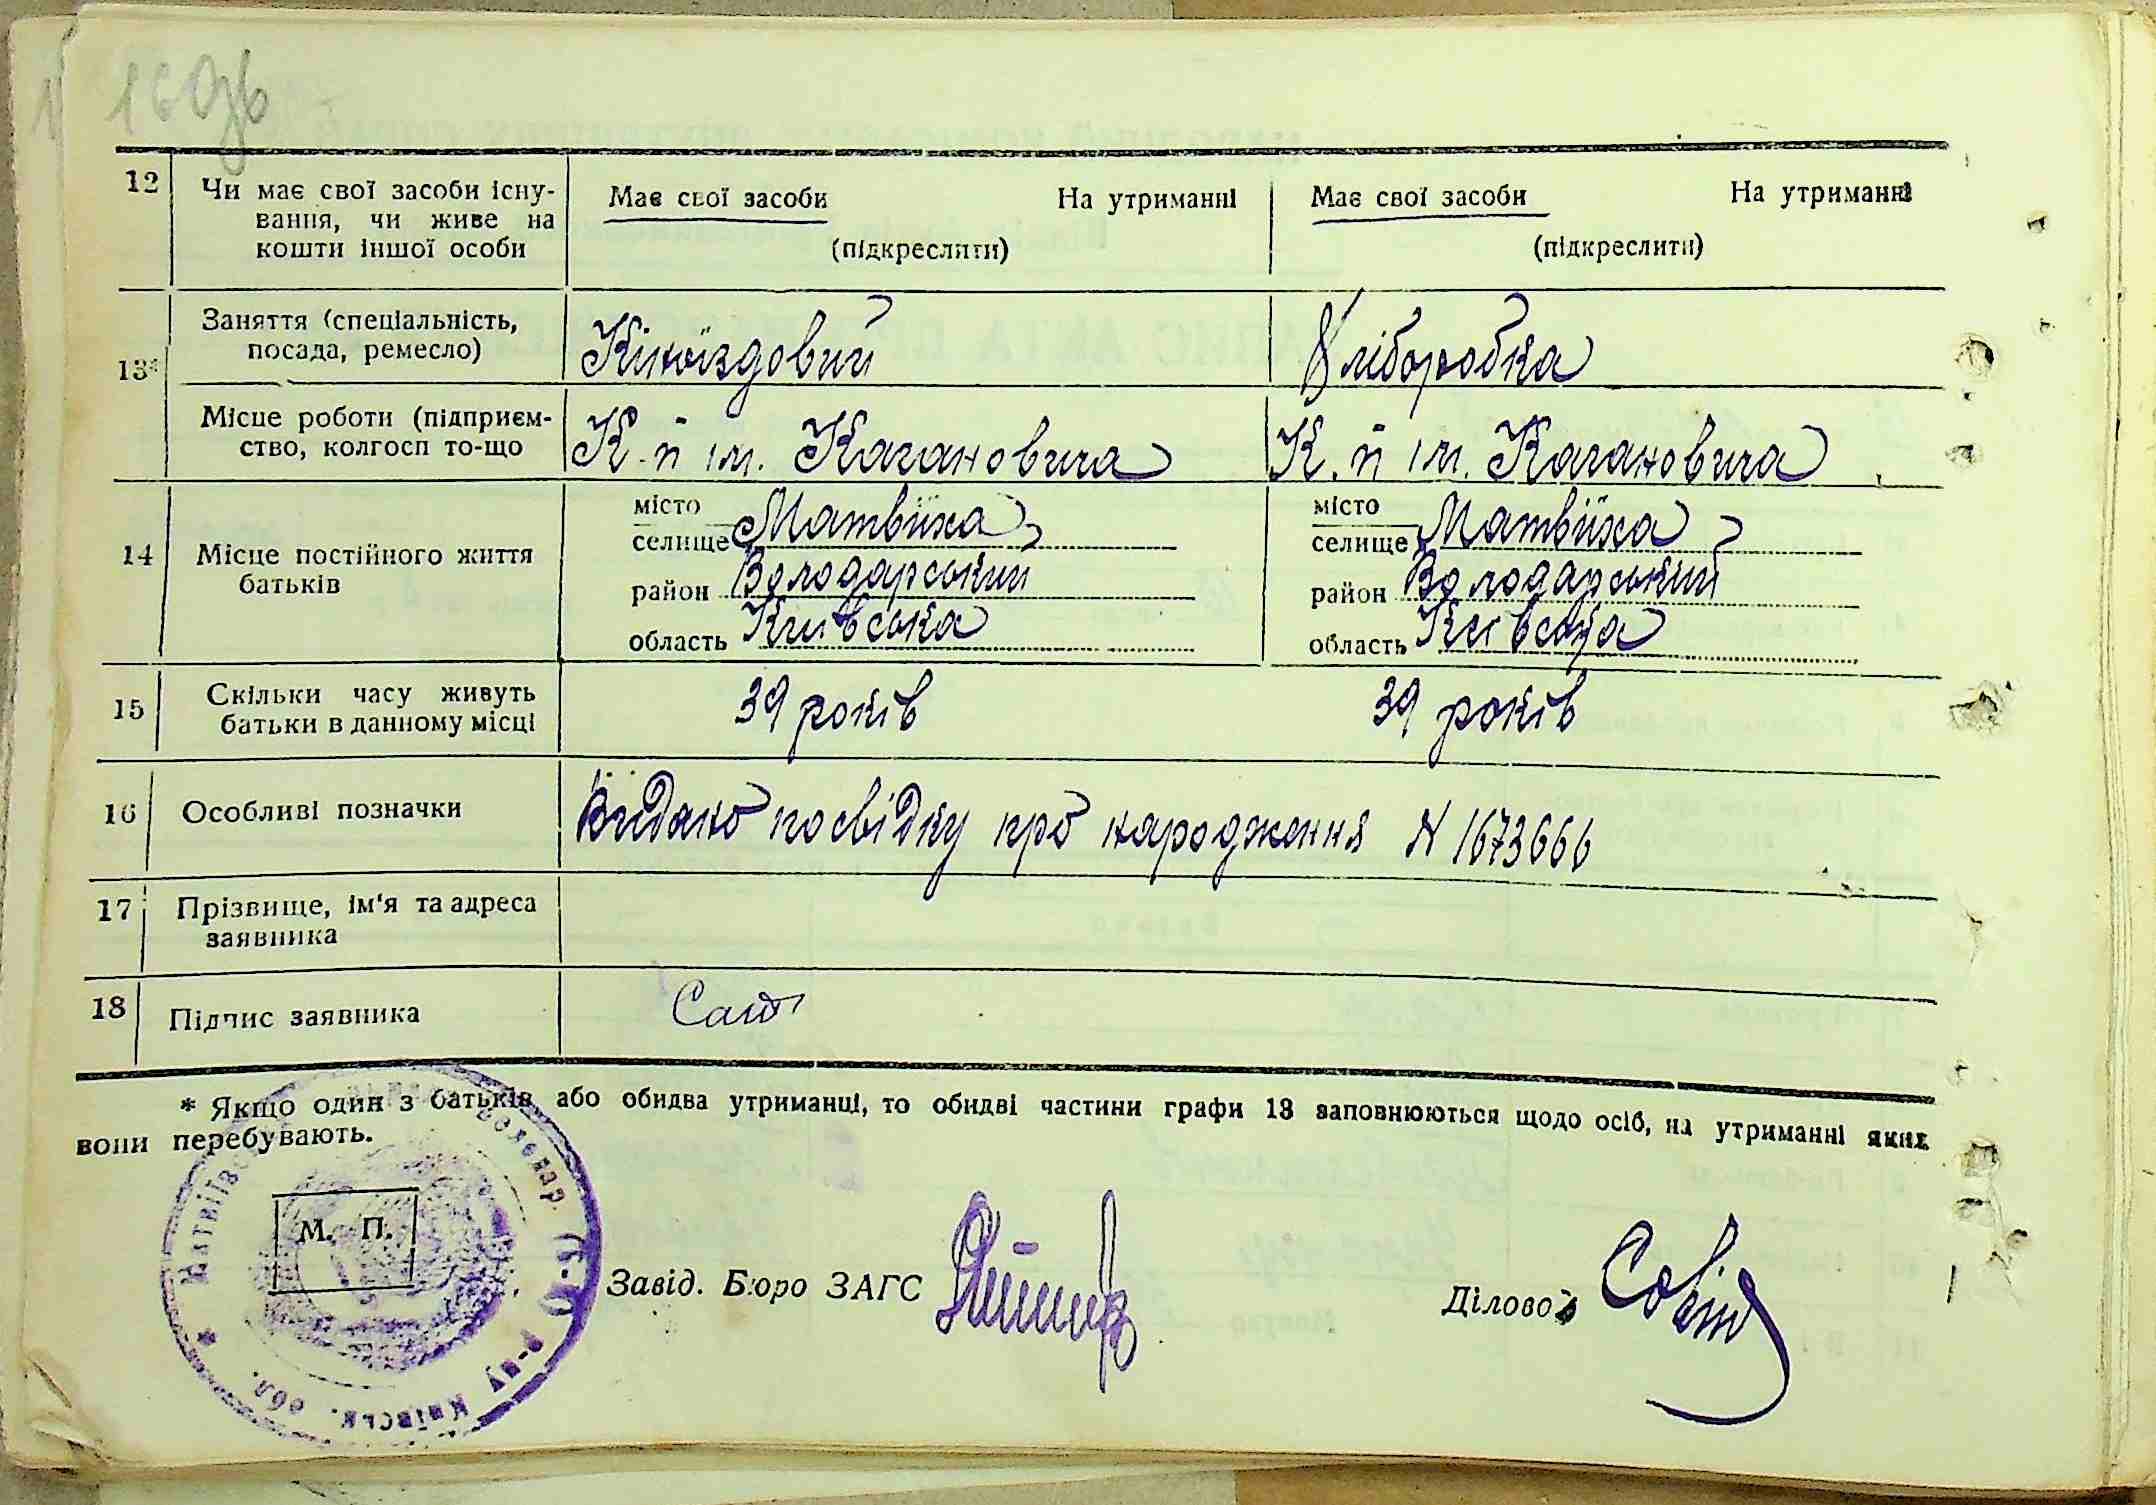 16 зв
12
Чи має свої засоби існу-
вання, чи живе на
кошти іншої особи
Має свої засоби На утриманні
(підкреслити)
Має свої засоби На утриманні
(підкреслити)
13*
Заняття (спеціальність,
посада, ремесло)
Кіноїздовий
Хліборобка
Місце роботи (підприєм-
ство, колгосп то-що
К-п ім. Кагановича
К.п ім. Кагановича
14
Місце постійного життя
батьків
місто
селище Матвіїха
район Володарський
область Київська
місто
селище Матвіїха
район Володарський
область Київська
15
Скільки часу живуть
батьки в данному місці
39 років
39 років
16
Особливі позначки
Видано посвідку про народження N 1673666
17
Прізвище, ім'я та адреса
заявника
18
Підпис заявника
* Якщо один з батьків або обидва утриманці, то обидві частини графи 13 заповнюються щодо осіб, на утриманні яких
вони перебувають.
М. П.
Завід. Бюро ЗАГС
Діловод
р-ну Київськ. обл.